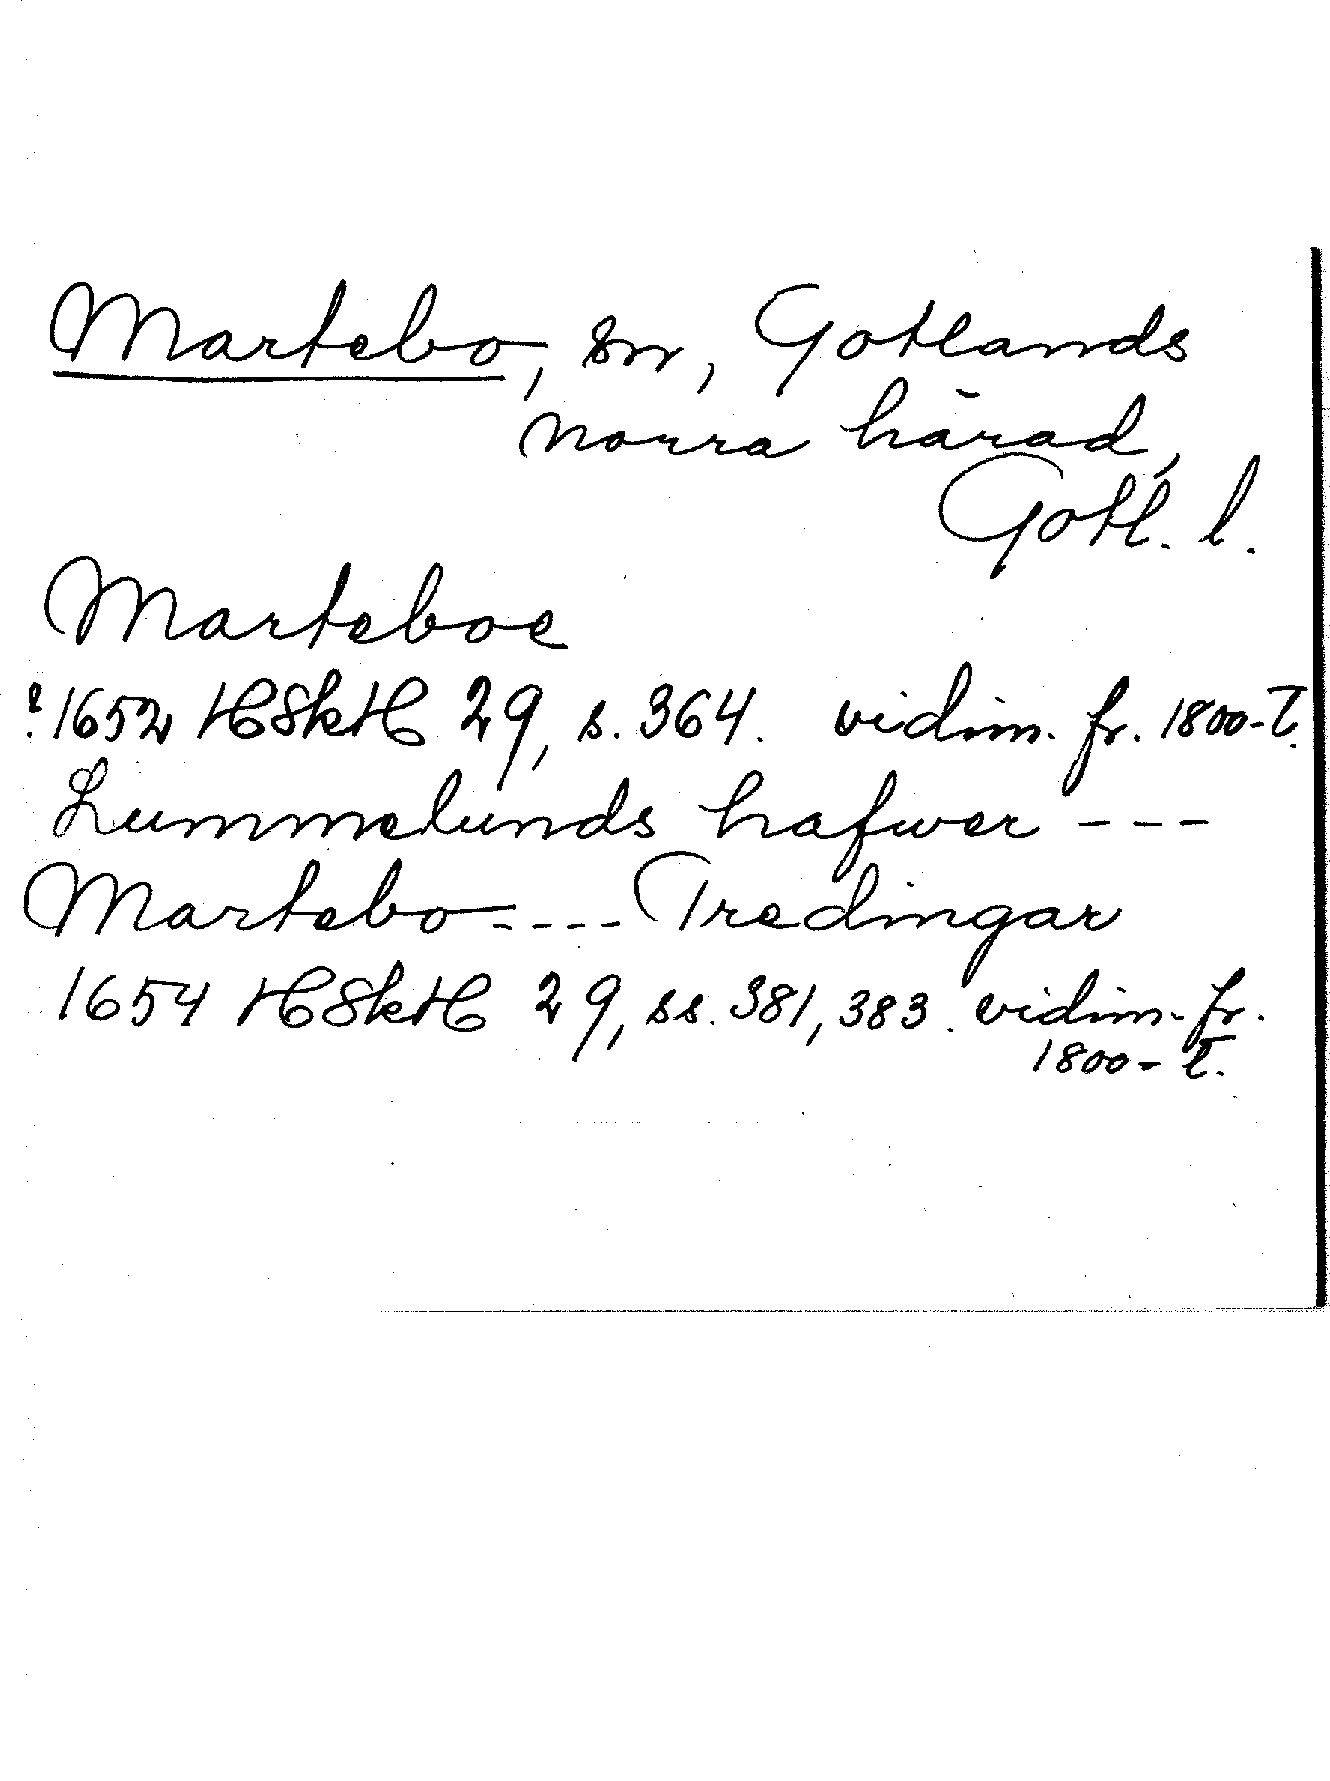 Martebo, sn, Gotlands
norra härad,
Gotl. l.
Marteboe
? 1652 HSkH 29, s. 364. vidim. fr. 1800-t.
Lummelunds hafwer ---
Martebo ---- Tredingar
1654 HSkH 29, ss. 381, 383. vidim. fr.
1800-t.